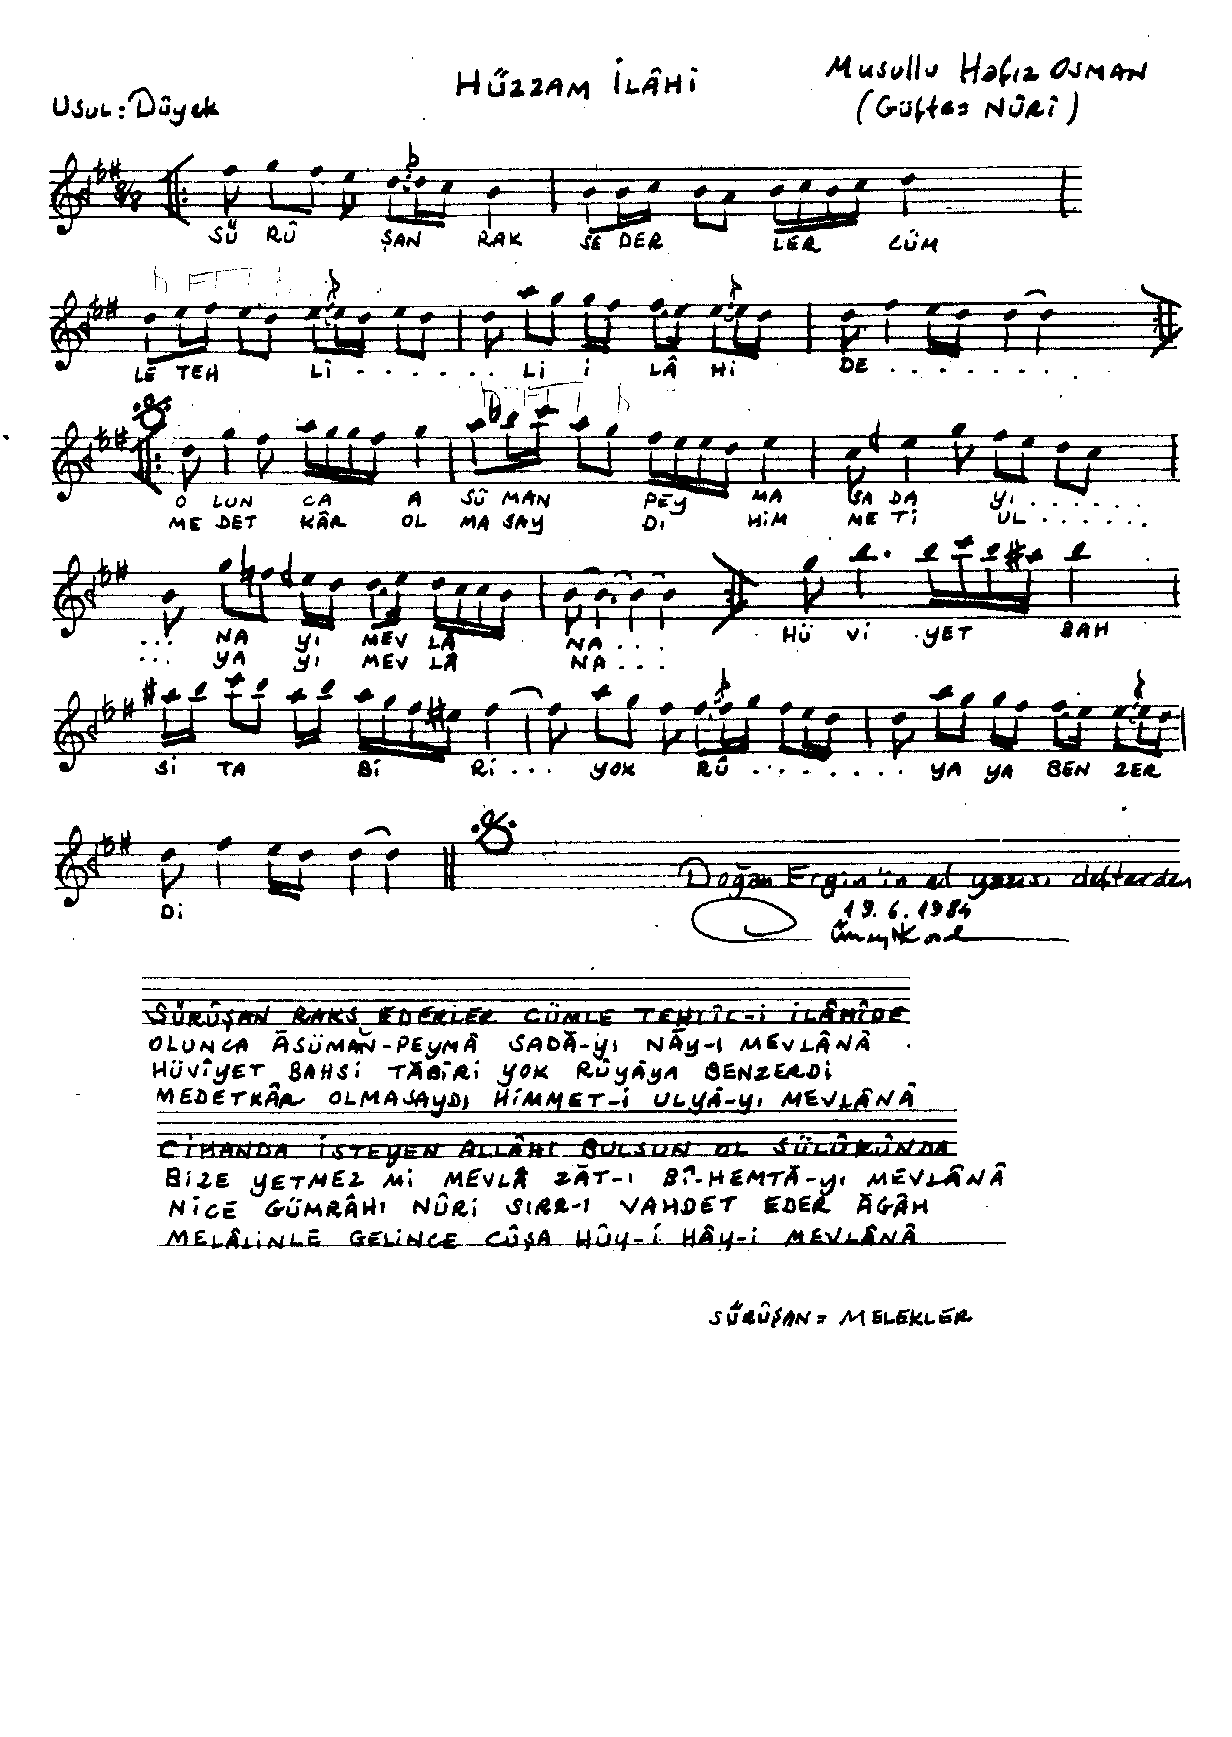 HÜZZAM İLÂHİ
Musullu Hafız OSMAN
Usul: Düyek
(Güfte= NÛRİ)
8/8
SÜ RÛ ŞAN RAK SE DER LER CÜM
LE TEH LÎ . . . . . . LÎ İ LÂ Hİ DE . . . . . . . .
O LUN CA A SÜ MAN PEY MA SA DA YI . . . . . .
ME DET KÂR OL MA SAY DI HİM ME Tİ UL . . . . . .
... NA YI MEV LÂ NA . . . HÜ Vİ YET BAH
... YA YI MEV LÂ NA . . .
Sİ TA Bİ Rİ . . . YOK RÛ . . . . . . . . YA YA BEN ZER
Dİ
Doğan Ergin'in el yazısı defterden
19.6.1984
SÜRÛŞAN RAKS EDERLER CÜMLE TEHLÎL-İ İLÂHÎDE
OLUNCA ÂSÜMAN-PEYMÂ SADÂ-YI NÂY-I MEVLÂNÂ
HÜVİYET BAHSİ TÂBİRİ YOK RÛYÂYA BENZERDİ
MEDETKÂR OLMASAYDI HİMMET-İ ULYÂ-YI MEVLÂNÂ
CİHANDA İSTEYEN ALLÂHI BULSUN OL SÜLÛKÜNDA
BİZE YETMEZ Mİ MEVLÂ ZÂT-I BÎ-HEMTÂ-YI MEVLÂNÂ
NİCE GÜMRÂHI NÛRİ SIRR-I VAHDET EDER ÂGÂH
MELÂLİNLE GELİNCE CÛŞA HÛY-İ HÂY-İ MEVLÂNÂ
SÜRÛŞAN= MELEKLER